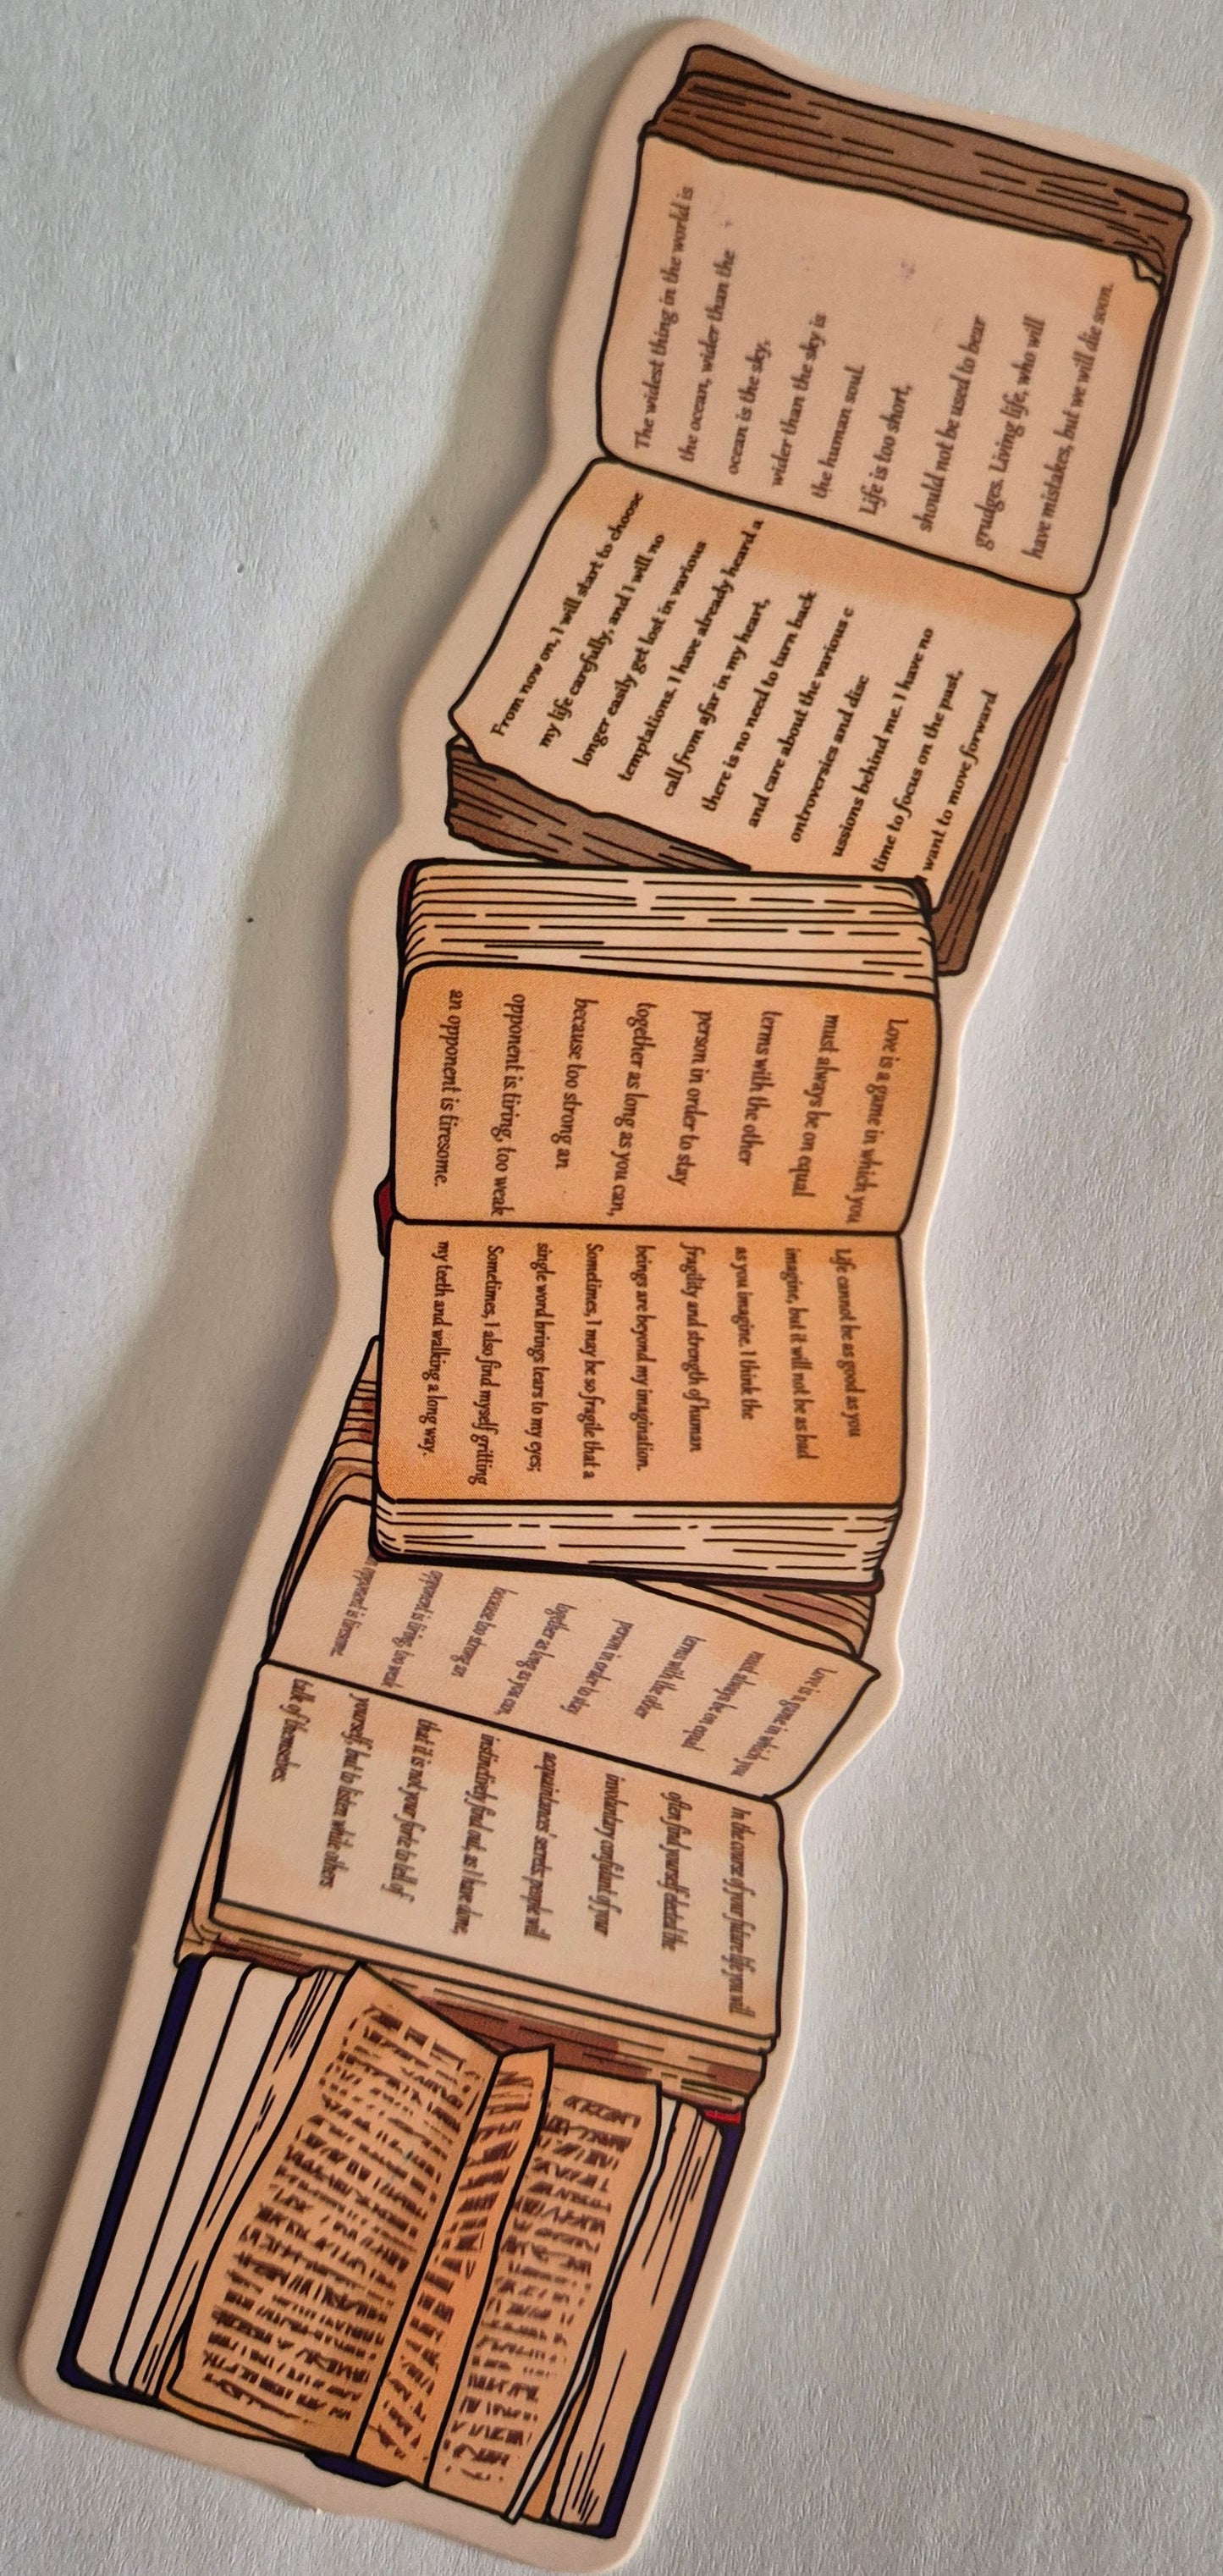 The widest thing in the world is
the ocean, wider than the
ocean is the sky,
wider than the sky is
the human soul.
Life is too short,
should not be used to bear
grudges. Living life, who will
have mistakes, but we will die soon.
From now on, I will start to choose
my life carefully, and I will no
longer easily get lost in various
temptations. I have already heard a
call from afar in my heart,
there is no need to turn back
and care about the various c
ontroversies and disc
ussions behind me. I have no
time to focus on the past,
I want to move forward
Love is a game in which you
must always be on equal
terms with the other
person in order to stay
together as long as you can,
because too strong an
opponent is tiring, too weak
an opponent is tiresome.
Life cannot be as good as you
imagine, but it will not be as bad
as you imagine. I think the
fragility and strength of human
beings are beyond my imagination.
Sometimes, I may be so fragile that a
single word brings tears to my eyes;
Sometimes, I also find myself gritting
my teeth and walking a long way.
Love is a game in which you
must always be on equal
terms with the other
person in order to stay
together as long as you can,
because too strong an
opponent is tiring, too weak
opponent is tiresome.
In the course of your future life you will
often find yourself elected the
involuntary confidant of your
acquaintances' secrets: people will
instinctively find out, as I have done,
that it is not your forte to tell of
yourself, but to listen while others
talk of themselves.